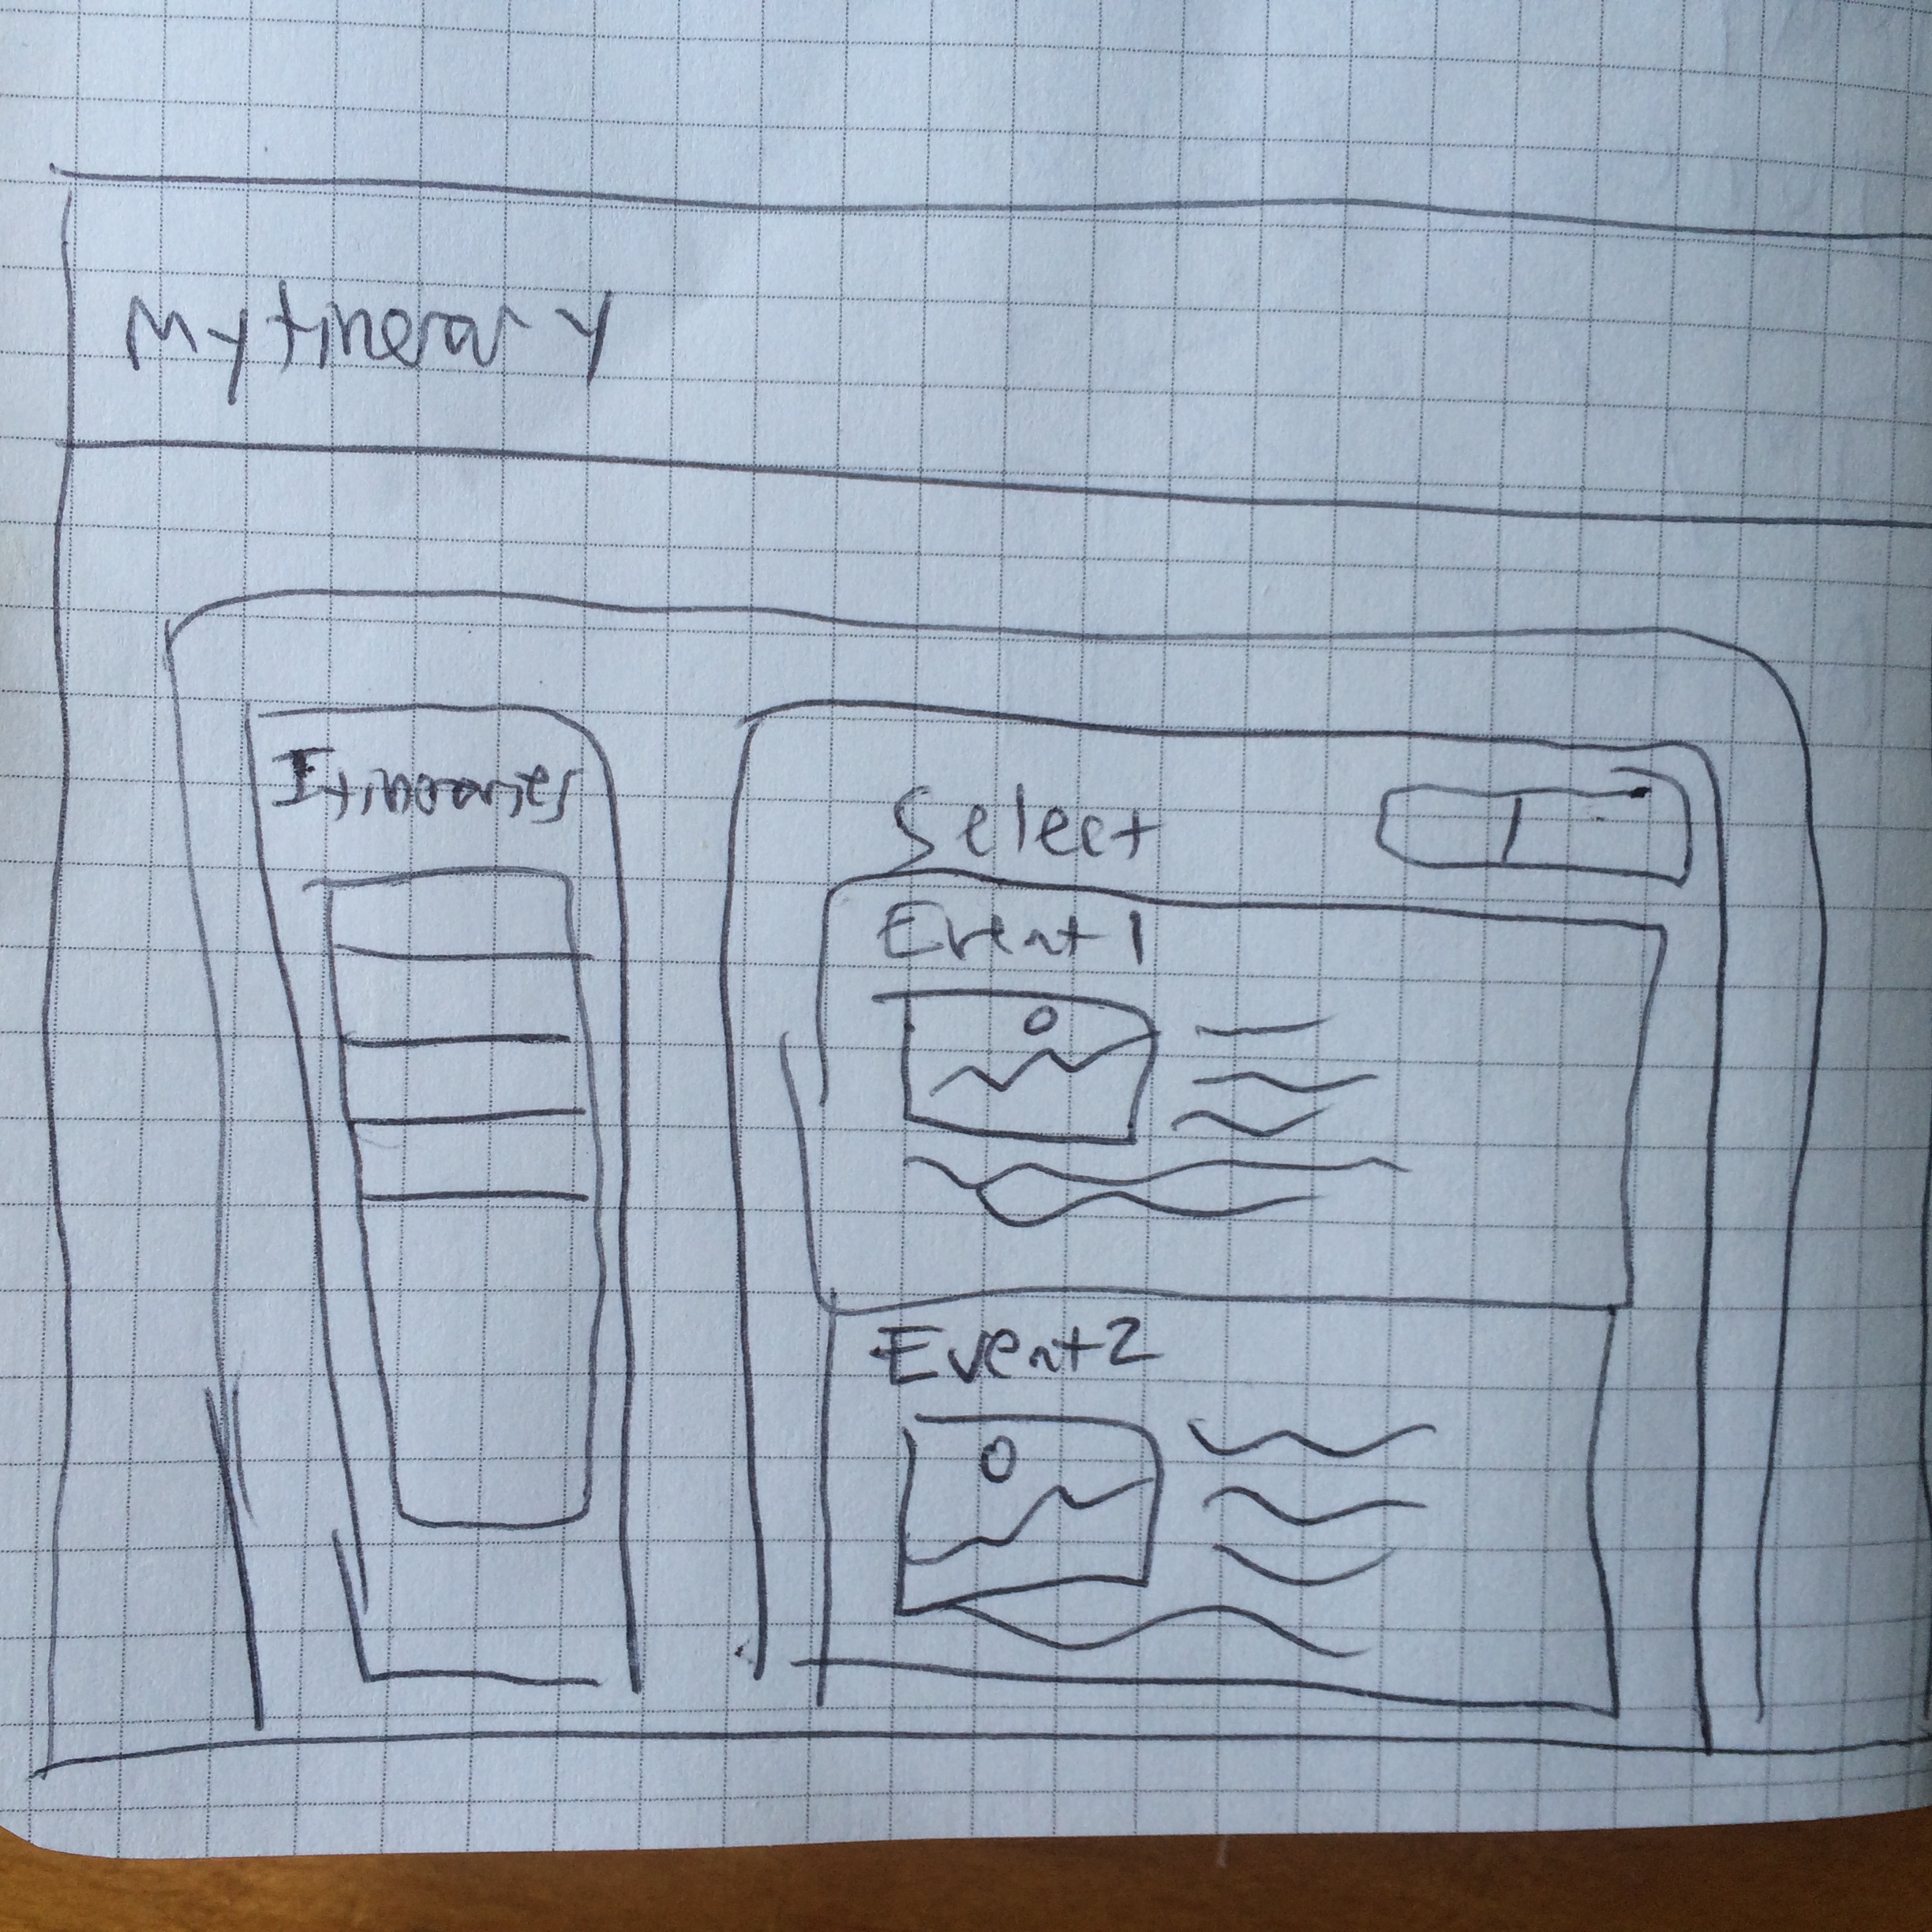 Mytinerary
Itineraries
Select
Event 1
Event 2